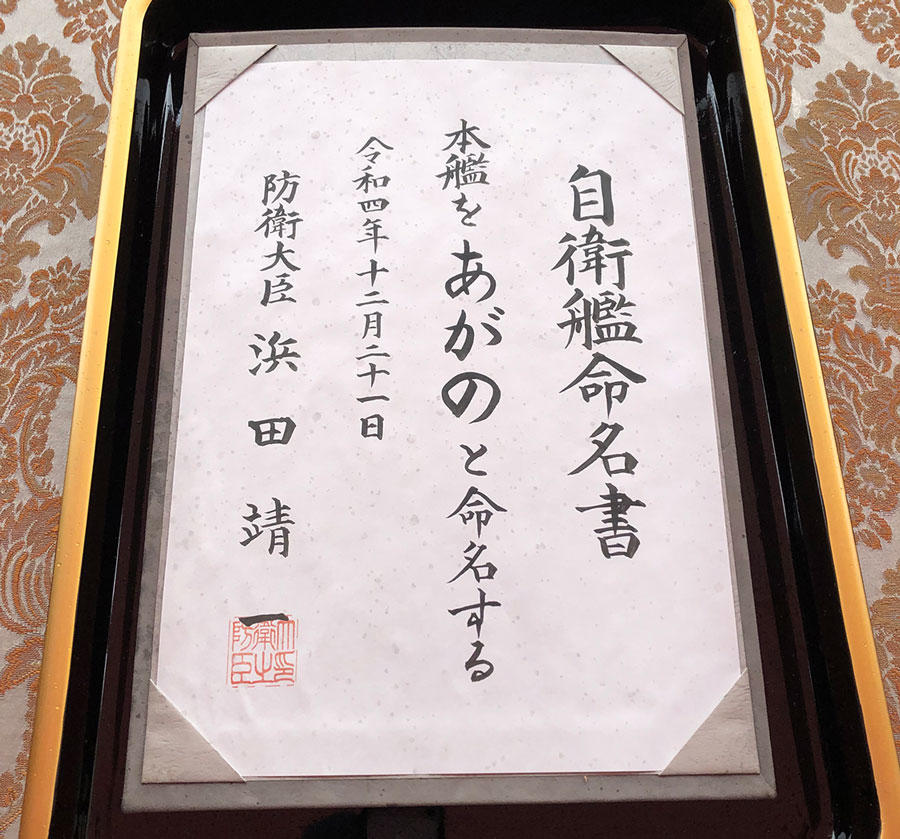 自衛艦命名書
本艦をあがのと命名する
令和四年十二月二十一日
防衛大臣 浜田靖一
防衛大臣之印